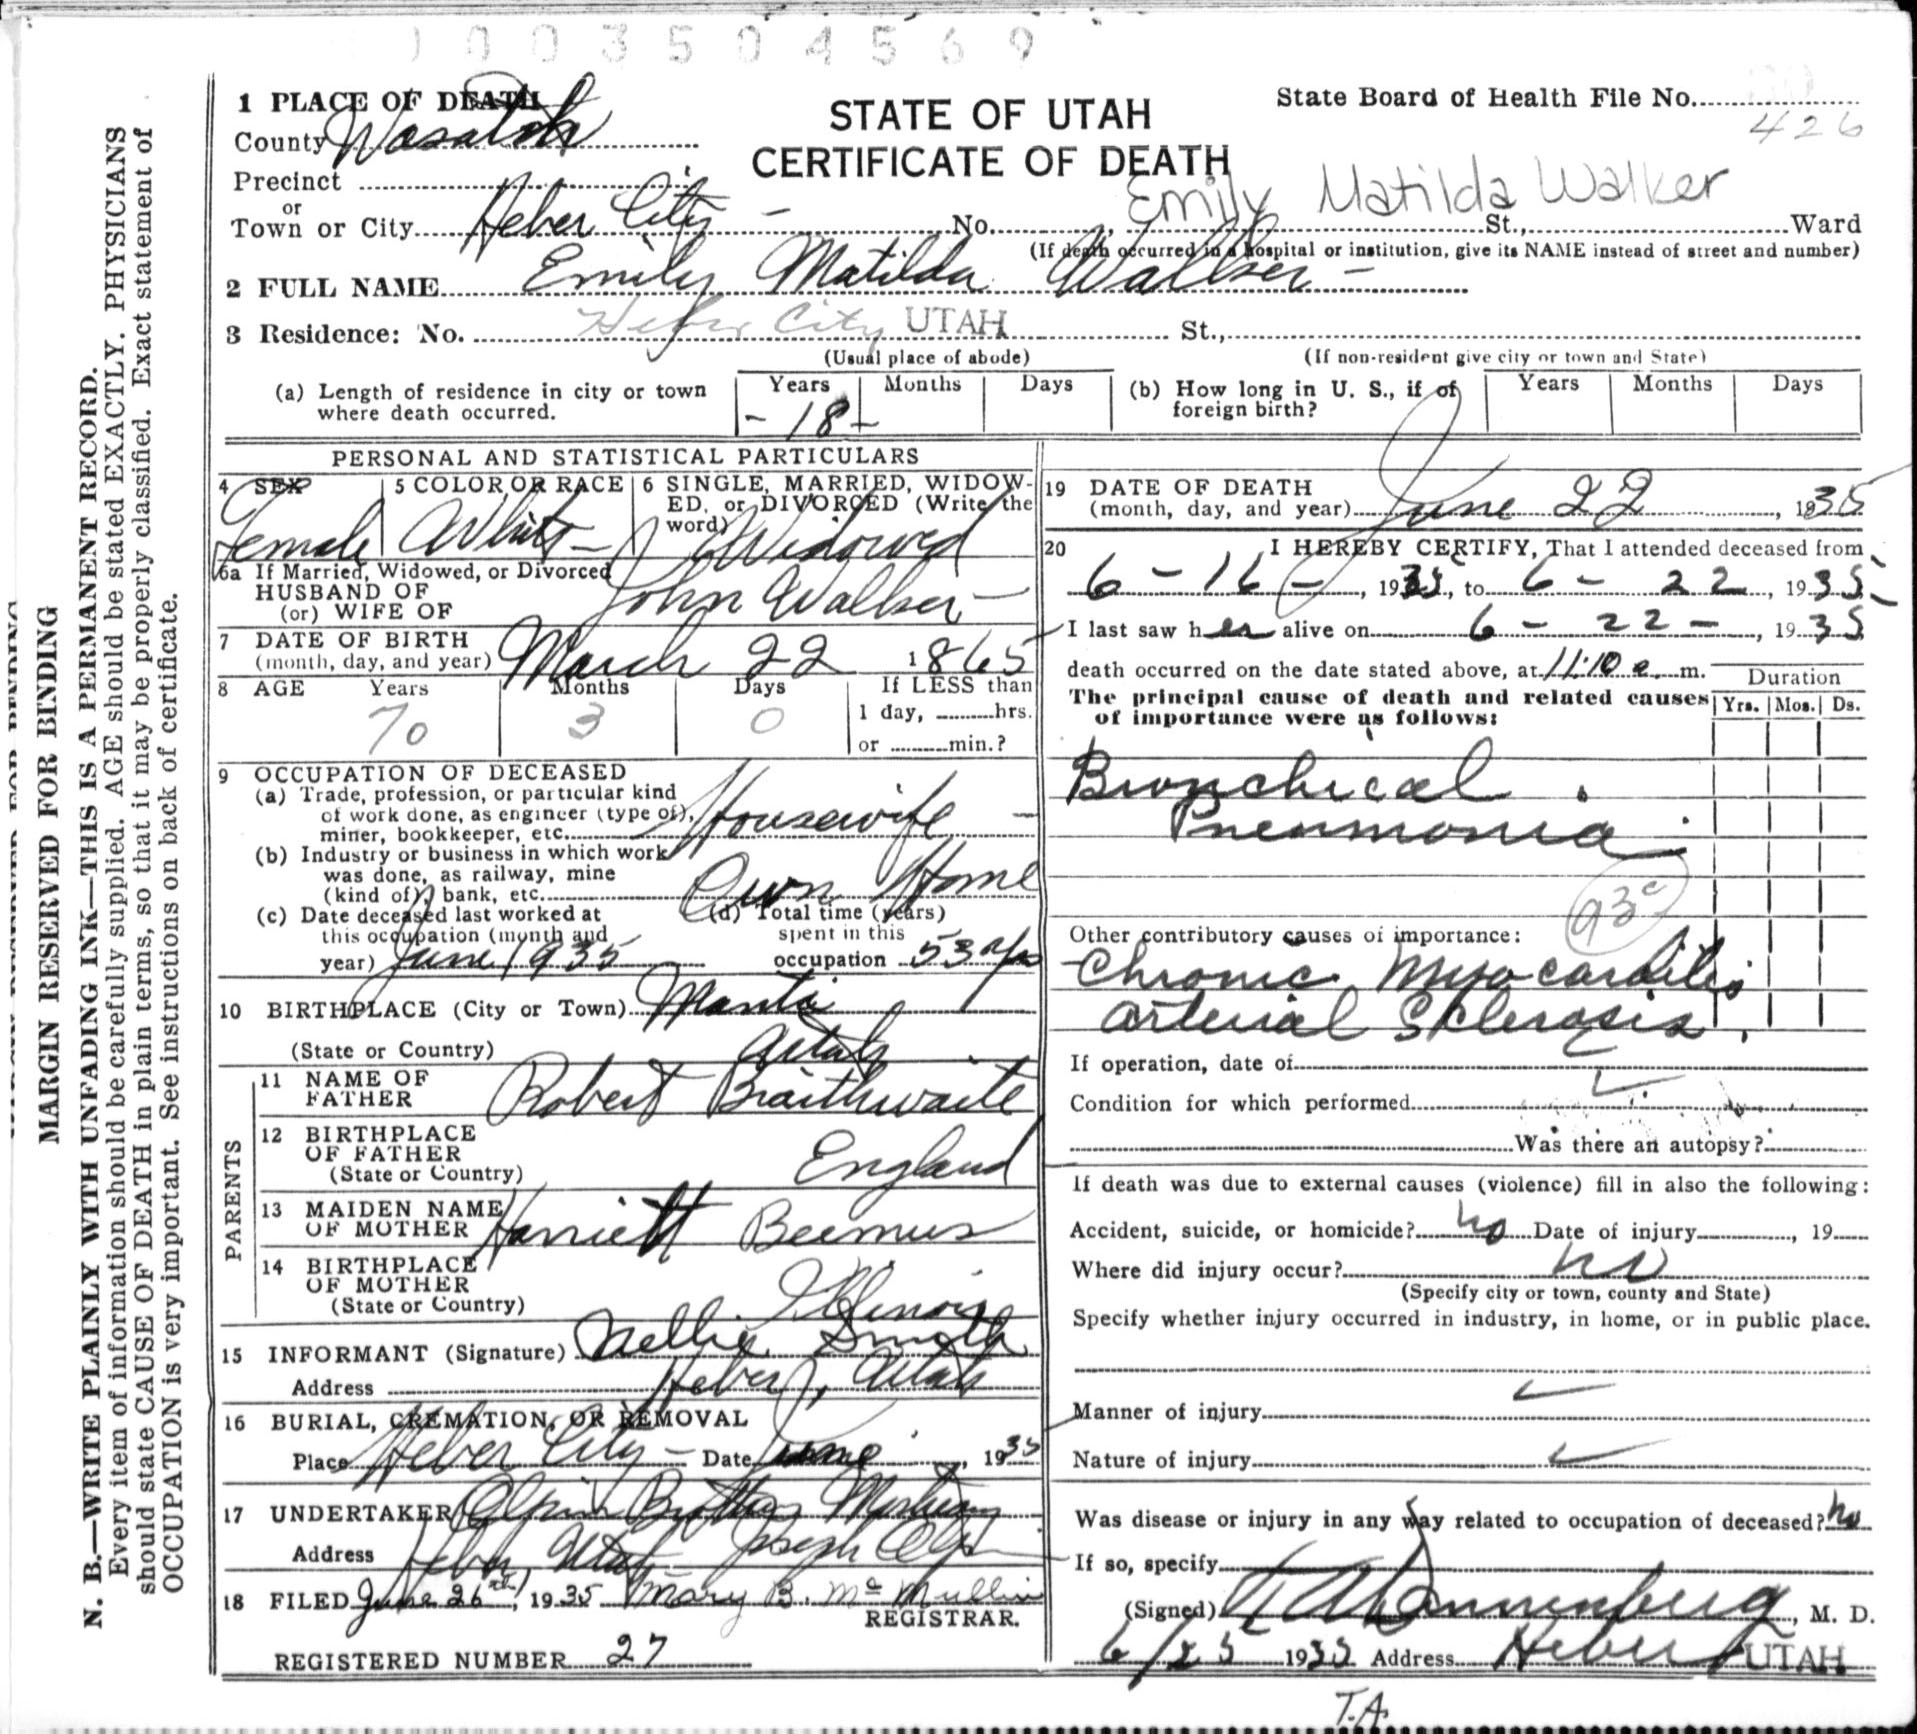 0003504569
1 PLACE OF DEATH
County Wasatch
Precinct
or
Town or City Heber City - No. St., Ward
STATE OF UTAH
CERTIFICATE OF DEATH
State Board of Health File No.
426
Emily Matilda Walker
(If death occurred in a hospital or institution, give its NAME instead of street and number)
2 FULL NAME Emily Matilda Walker -
3 Residence: No. Heber City UTAH St.,
(Usual place of abode) (If non-resident give city or town and State)
(a) Length of residence in city or town where death occurred. Years Months Days
- 18 -
(b) How long in U. S., if of foreign birth? Years Months Days
PERSONAL AND STATISTICAL PARTICULARS
4 SEX 5 COLOR OR RACE 6 SINGLE, MARRIED, WIDOWED, or DIVORCED (Write the word)
Female White - Widowed
6a If Married, Widowed, or Divorced
HUSBAND OF
(or) WIFE OF John Walker -
7 DATE OF BIRTH
(month, day, and year) March 22 1865
8 AGE Years Months Days If LESS than
70 3 0 1 day, hrs.
or min.?
9 OCCUPATION OF DECEASED
(a) Trade, profession, or particular kind
of work done, as engineer (type of),
miner, bookkeeper, etc. Housewife -
(b) Industry or business in which work
was done, as railway, mine
(kind of), bank, etc. Own Home
(c) Date deceased last worked at
this occupation (month and
year) June 1935
(d) Total time (years)
spent in this
occupation 53 yrs
10 BIRTHPLACE (City or Town) Manti
(State or Country) Utah
PARENTS
11 NAME OF
FATHER Robert Braithwaite
12 BIRTHPLACE
OF FATHER
(State or Country) England
13 MAIDEN NAME
OF MOTHER Harriett Beemus
14 BIRTHPLACE
OF MOTHER
(State or Country) Illinois
15 INFORMANT (Signature) Nellie Smith
Address Heber, Utah
16 BURIAL, CREMATION, OR REMOVAL
Place Heber City - Date June, 1935
17 UNDERTAKER Olpin Brothers Mortuary
Address Heber, Utah - Joseph Olpin
18 FILED June 26th, 1935 Mary B. McMullin
REGISTRAR.
REGISTERED NUMBER 27
19 DATE OF DEATH
(month, day, and year) June 22, 1935
20 I HEREBY CERTIFY, That I attended deceased from
6 - 16 -, 1935, to 6 - 22, 1935
I last saw her alive on 6 - 22 -, 1935
death occurred on the date stated above, at 11:10 a. m.
Duration
The principal cause of death and related causes Yrs. Mos. Ds.
of importance were as follows:
Bronchical
Pneumonia
93c
Other contributory causes of importance:
Chronic Myocarditis
Arterial Sklerosis
If operation, date of
Condition for which performed
Was there an autopsy?
If death was due to external causes (violence) fill in also the following:
Accident, suicide, or homicide? no Date of injury, 19
Where did injury occur? no
(Specify city or town, county and State)
Specify whether injury occurred in industry, in home, or in public place.
Manner of injury
Nature of injury
Was disease or injury in any way related to occupation of deceased? no
If so, specify
(Signed) Dannenberg, M. D.
6/25 1935 Address Heber UTAH
T.A.
MARGIN RESERVED FOR BINDING
N. B.—WRITE PLAINLY WITH UNFADING INK—THIS IS A PERMANENT RECORD.
Every item of information should be carefully supplied. AGE should be stated EXACTLY. PHYSICIANS
should state CAUSE OF DEATH in plain terms, so that it may be properly classified. Exact statement of
OCCUPATION is very important. See instructions on back of certificate.